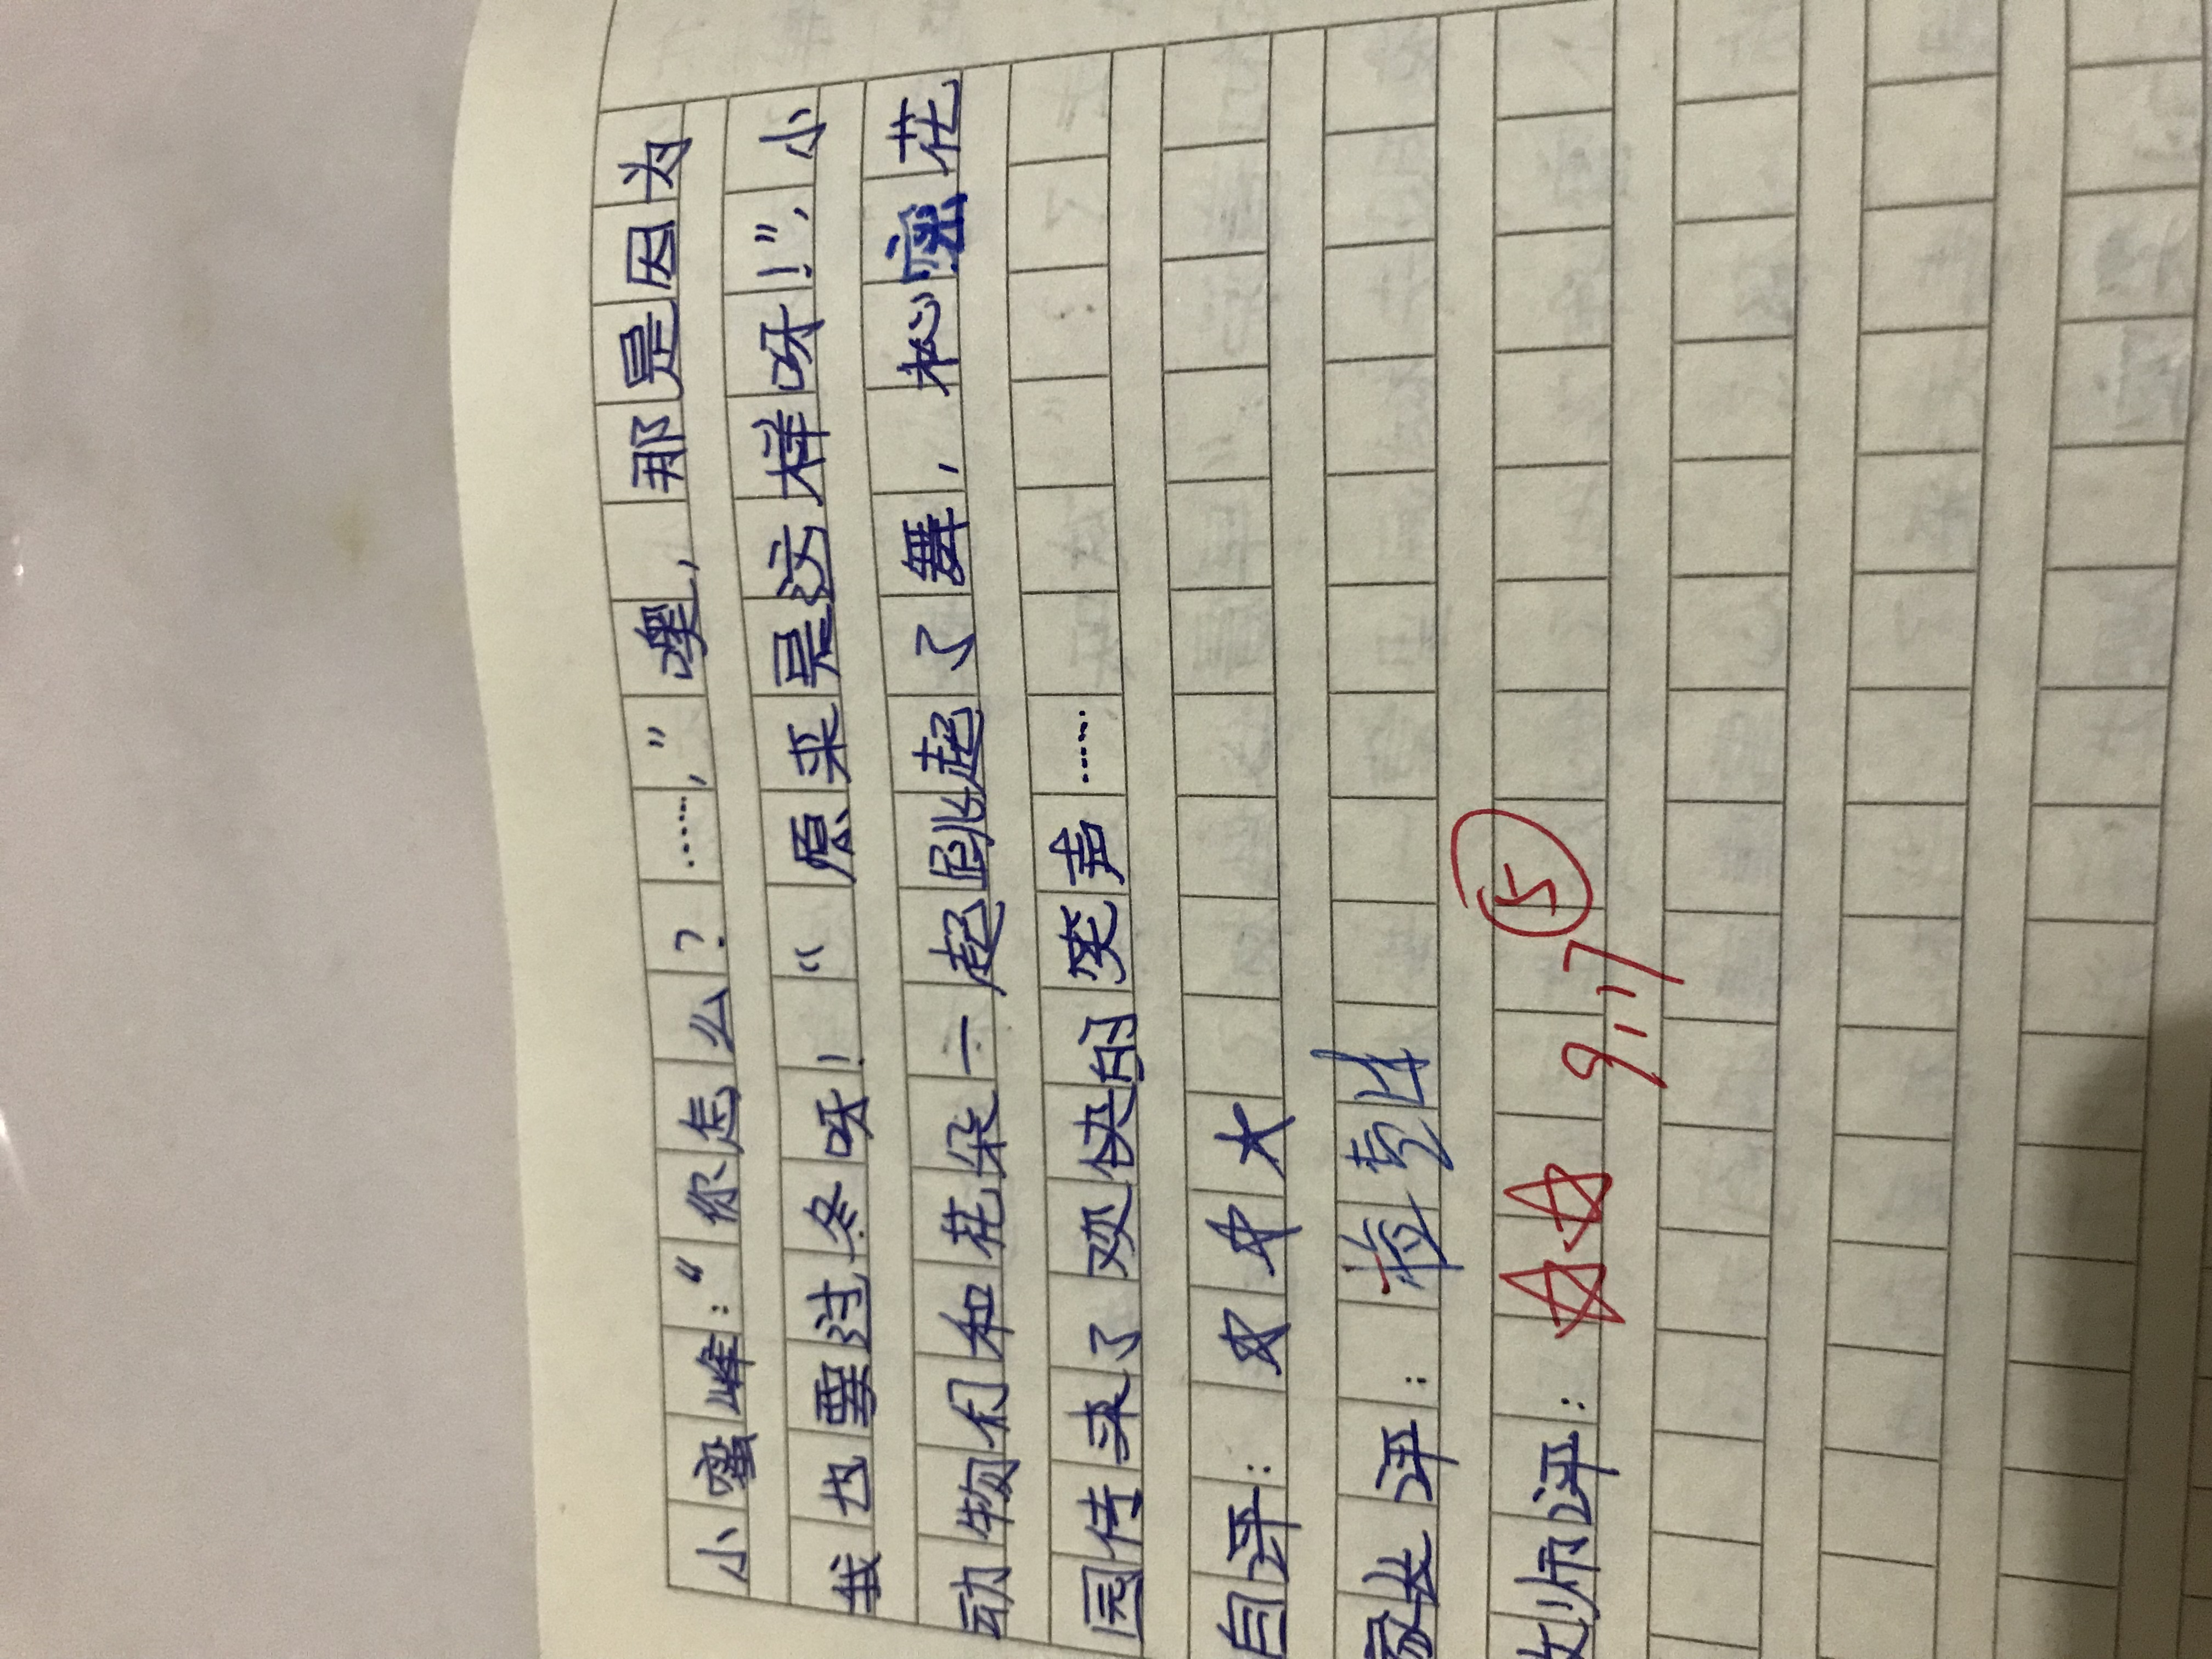 小蜜峰：“你怎么？……，”噢，那是因为
我也要过冬呀！“原来是这样呀！”，小
动物们和花朵一起跳起了舞，秘密花
园传来了欢快的笑声……
自评：☆☆大
家长评：
教师评：☆☆ 9.17 5